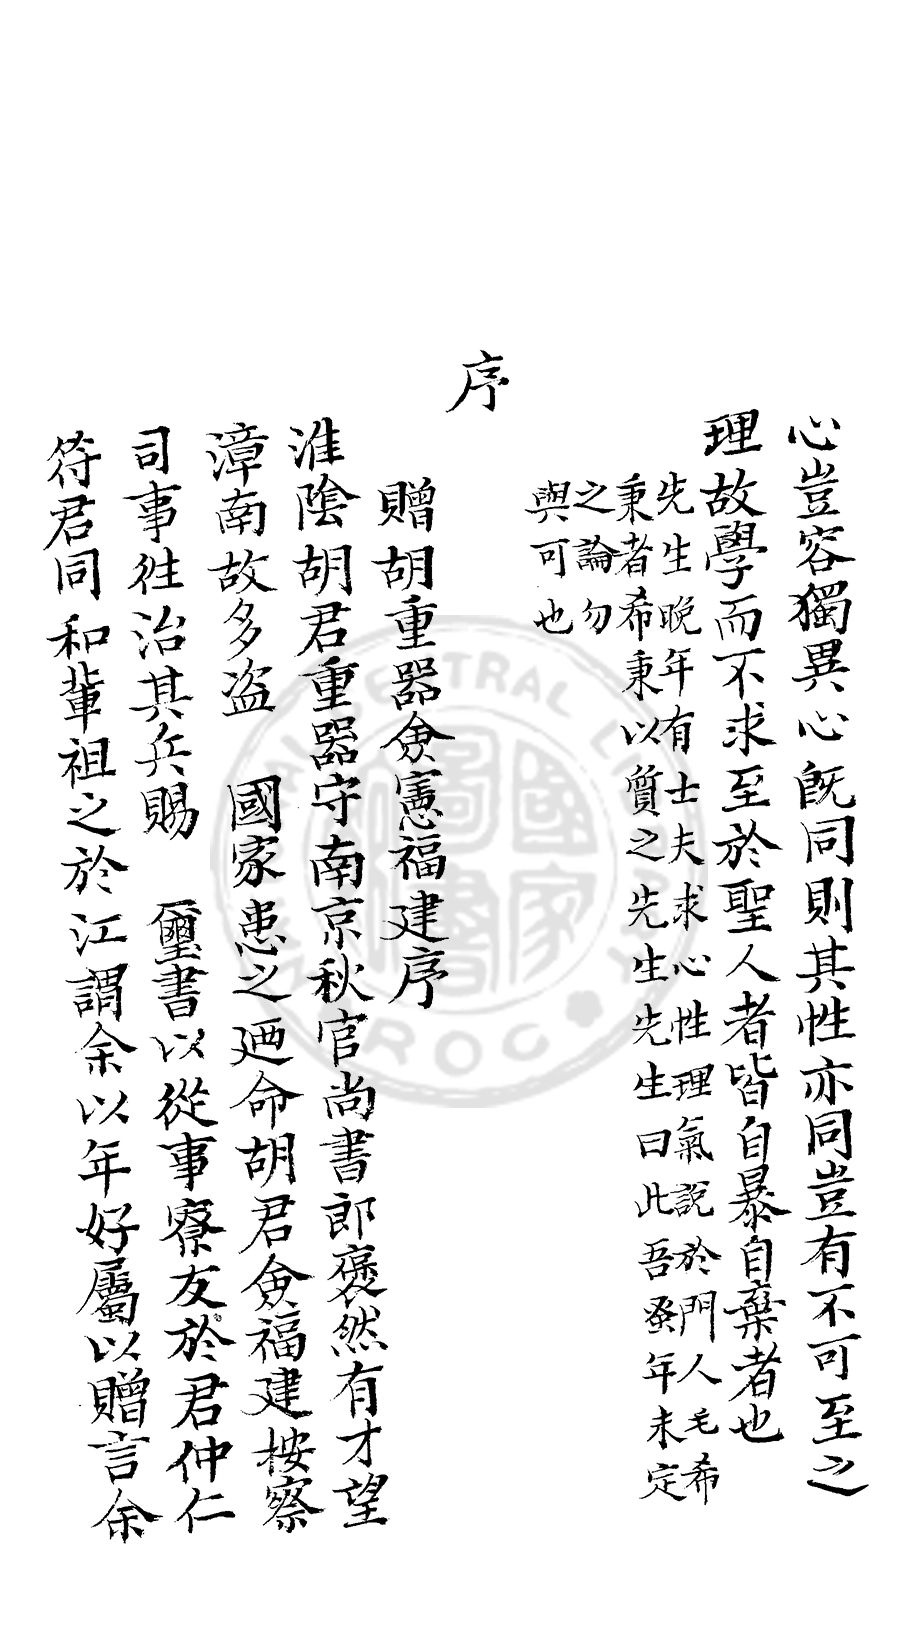 心豈容獨異心既同則其性亦同豈有不可至之
理故學而不求至於聖人者皆自暴自棄者也
先生晚年有士夫求心性理氣說於門人毛希
秉者希秉以質之先生先生曰此吾蚤年未定
之論勿
與可也
序
贈胡重器僉憲福建序
淮陰胡君重器守南京秋官尚書郎褒然有才望
漳南故多盗 國家患之廼命胡君僉福建按察
司事往治其兵賜 璽書以從事寮友於君仲仁
符君同和輩祖之於江謂余以年好屬以贈言余
NATIONAL CENTRAL LIBRARY
R.O.C
國家圖書館